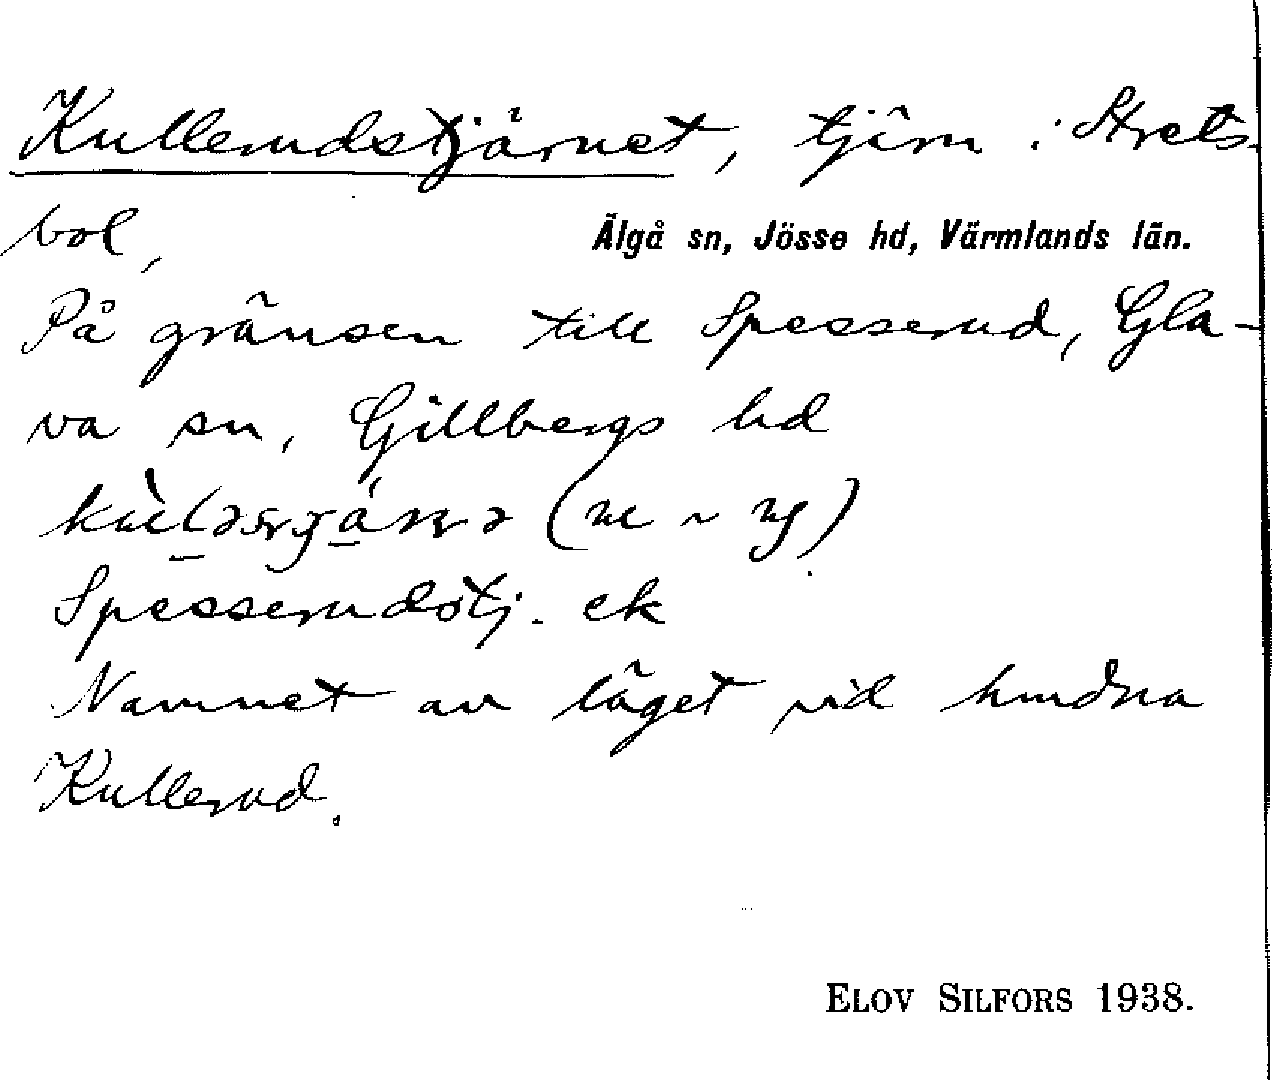 Kullerudstjärnet, tjärn i Strets-
bol,
Älgå sn, Jösse hd, Värmlands län.
På gränsen till Spesserud, Gla-
va sn, Gillbergs hd
Spesserudstj. ek
Namnet av läget vid hmdna
Kullerud.
ELOV SILFORS 1938.